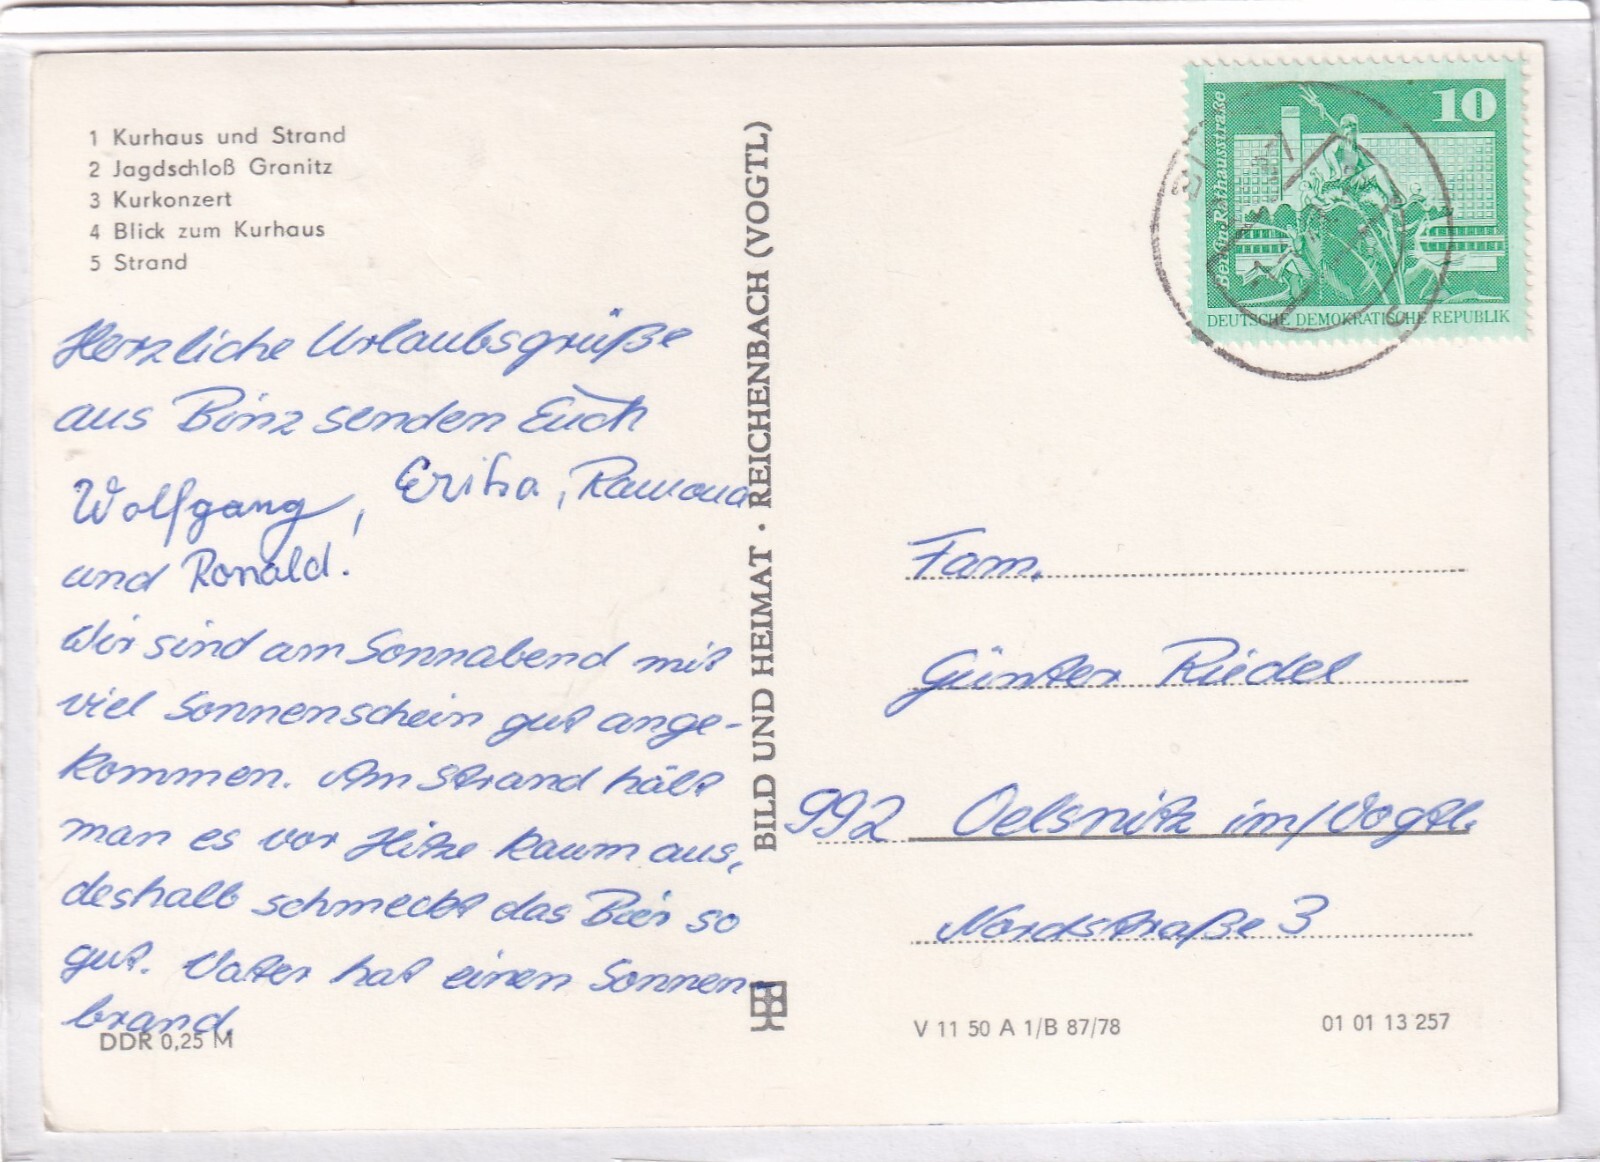 1 Kurhaus und Strand
2 Jagdschloß Granitz
3 Kurkonzert
4 Blick zum Kurhaus
5 Strand
Herzliche Urlaubsgrüße
aus Binz senden Euch
Wolfgang, Erika, Ramona
und Ronald.
Wir sind am Sonnabend mit
viel Sonnenschein gut ange-
kommen. Am Strand hält
man es vor Hitze kaum aus,
deshalb schmeckt das Bier so
gut. Vater hat einen Sonnen-
brand.
DDR 0,25 M
BILD UND HEIMAT · REICHENBACH (VOGTL)
10
Berlin, Rathausstraße
DEUTSCHE DEMOKRATISCHE REPUBLIK
Fam.
Günter Riedel
992 Oelsnitz im/Vogtl.
Nordstraße 3
V 11 50 A 1/B 87/78
01 01 13 257